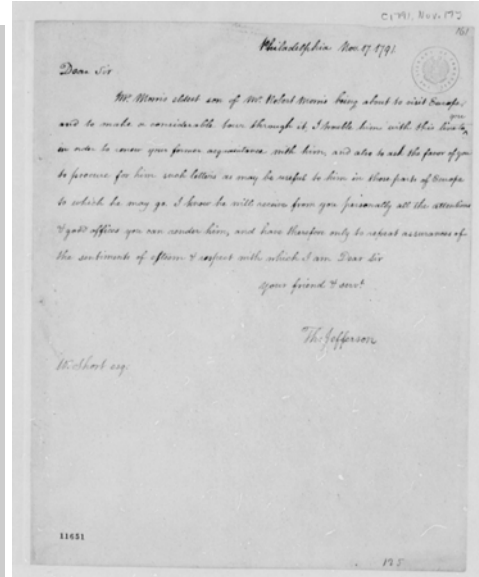 [1791, Nov. 17]
161
Philadelphia Nov. 17. 1791.
Dear Sir
Mr. Morris eldest son of Mr. Robert Morris being about to visit Europe
and to make a considerable tour through it, I trouble him with this line to you
in order to renew your former acquaintance with him, and also to ask the favor of you
to procure for him such letters as may be useful to him in those parts of Europe
to which he may go. I know he will receive from you personally all the attentions
& good offices you can render him, and have therefore only to repeat assurances of
the sentiments of esteem & respect with which I am Dear Sir
your friend & servt.
Th: Jefferson
W. Short esq.
11651